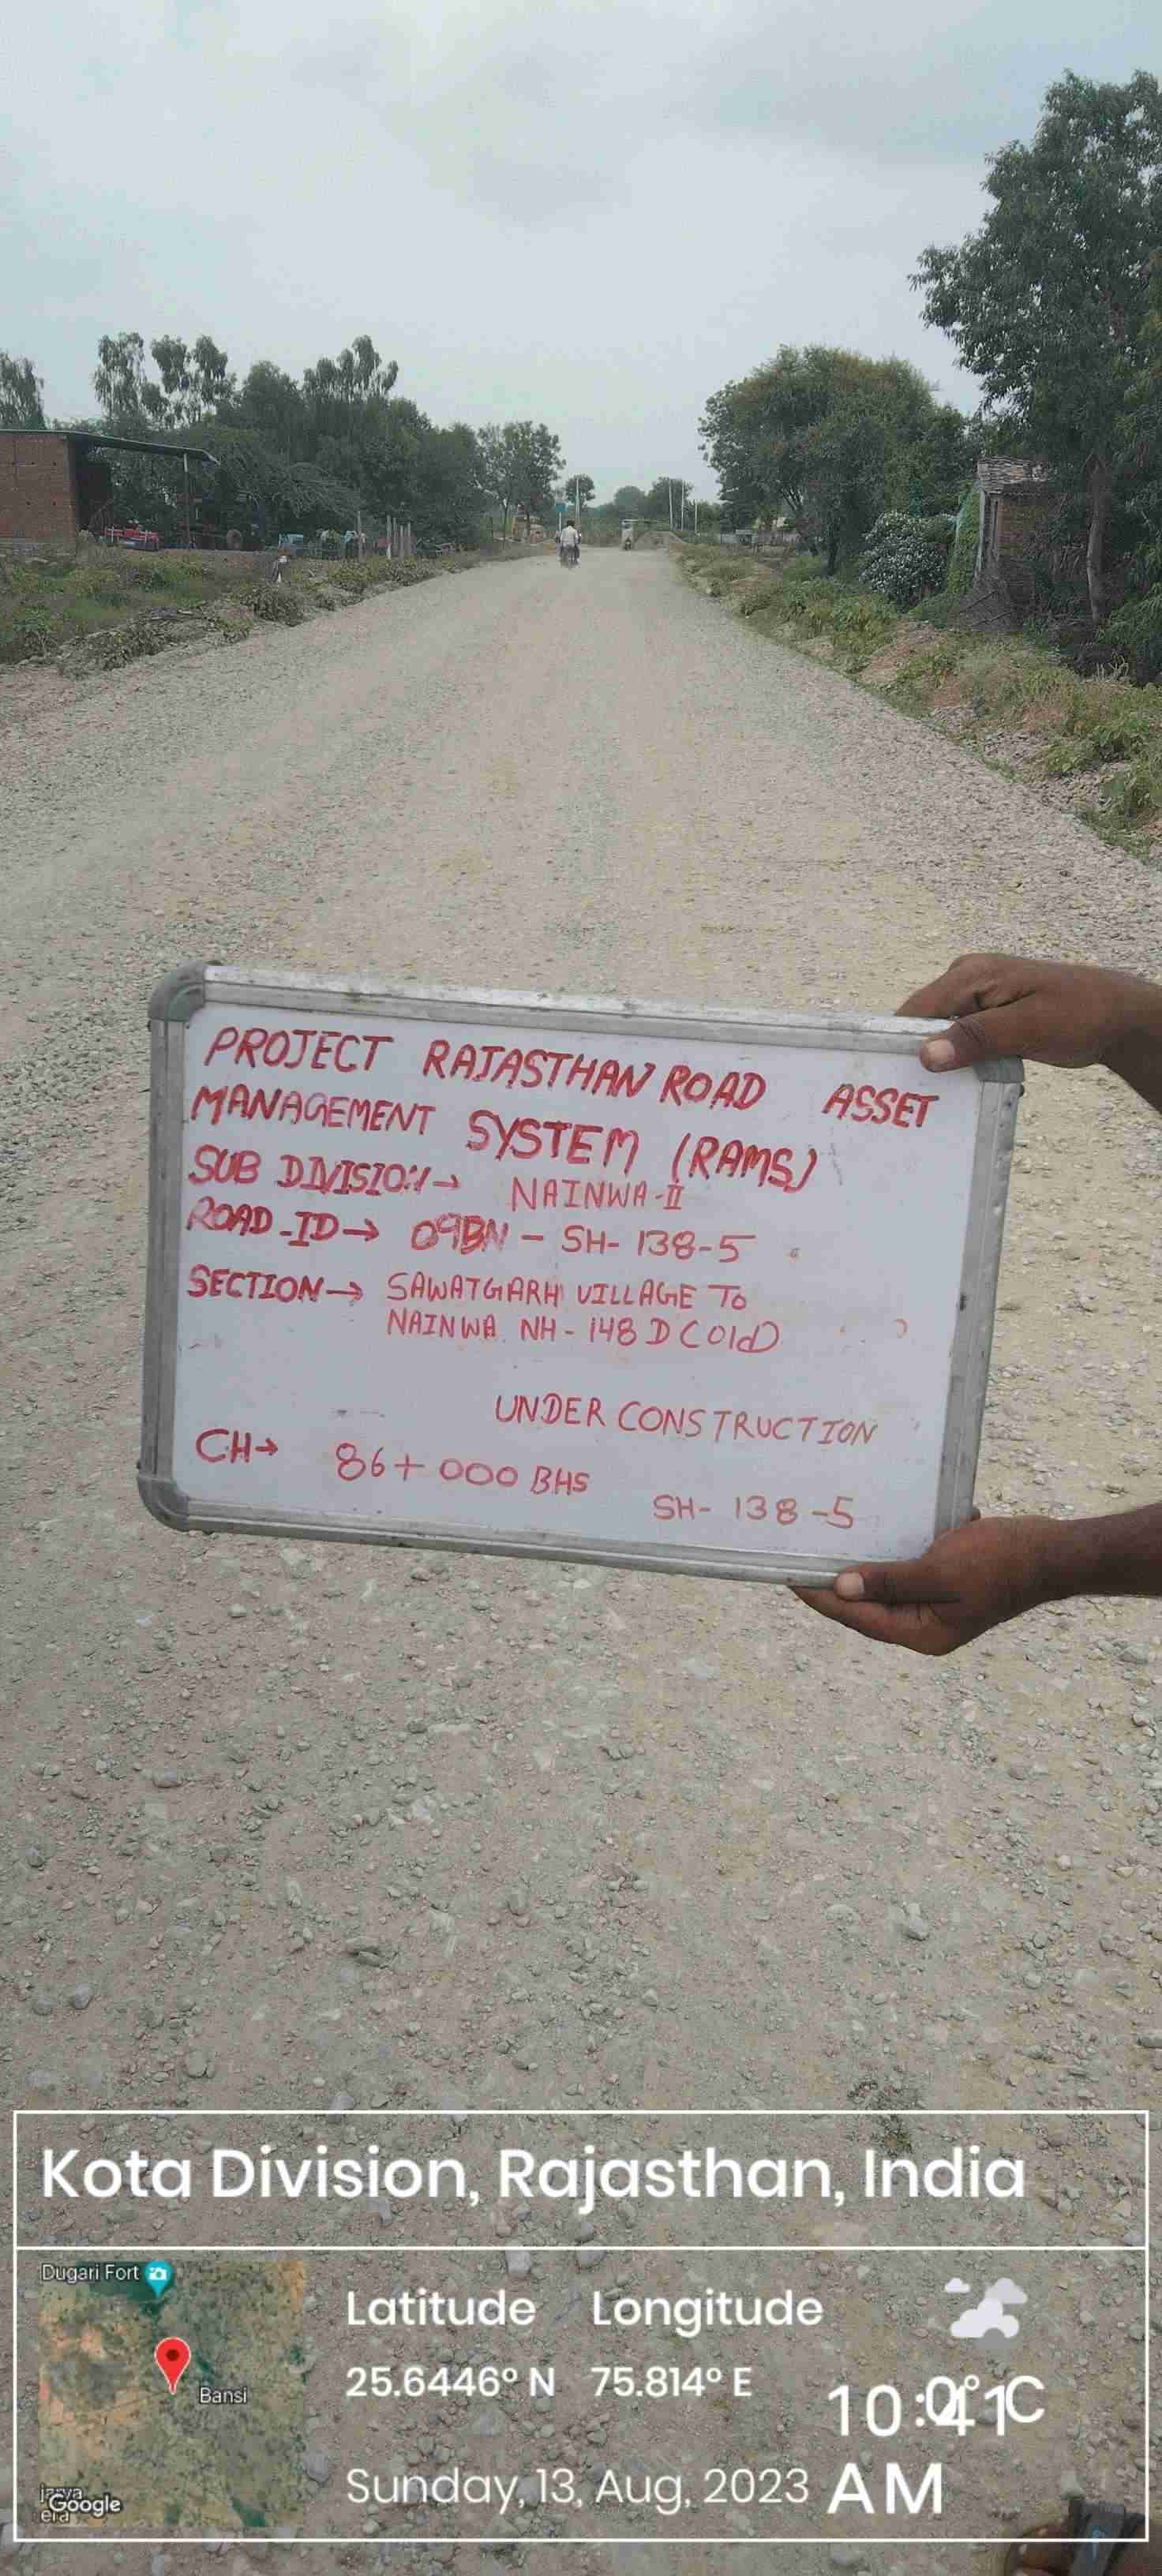 PROJECT RAJASTHAN ROAD ASSET
MANAGEMENT SYSTEM (RAMS)
SUB DIVISION→ NAINWA-II
ROAD-ID→ 09BN - SH- 138-5
SECTION→ SAWATGARH VILLAGE TO
NAINWA NH- 148 D (Old)
UNDER CONSTRUCTION
CH→ 86+000 BHS
SH- 138-5
Kota Division, Rajasthan, India
Dugari Fort
Bansi
Google
Latitude Longitude
25.6446° N 75.814° E
Sunday, 13, Aug, 2023
AM